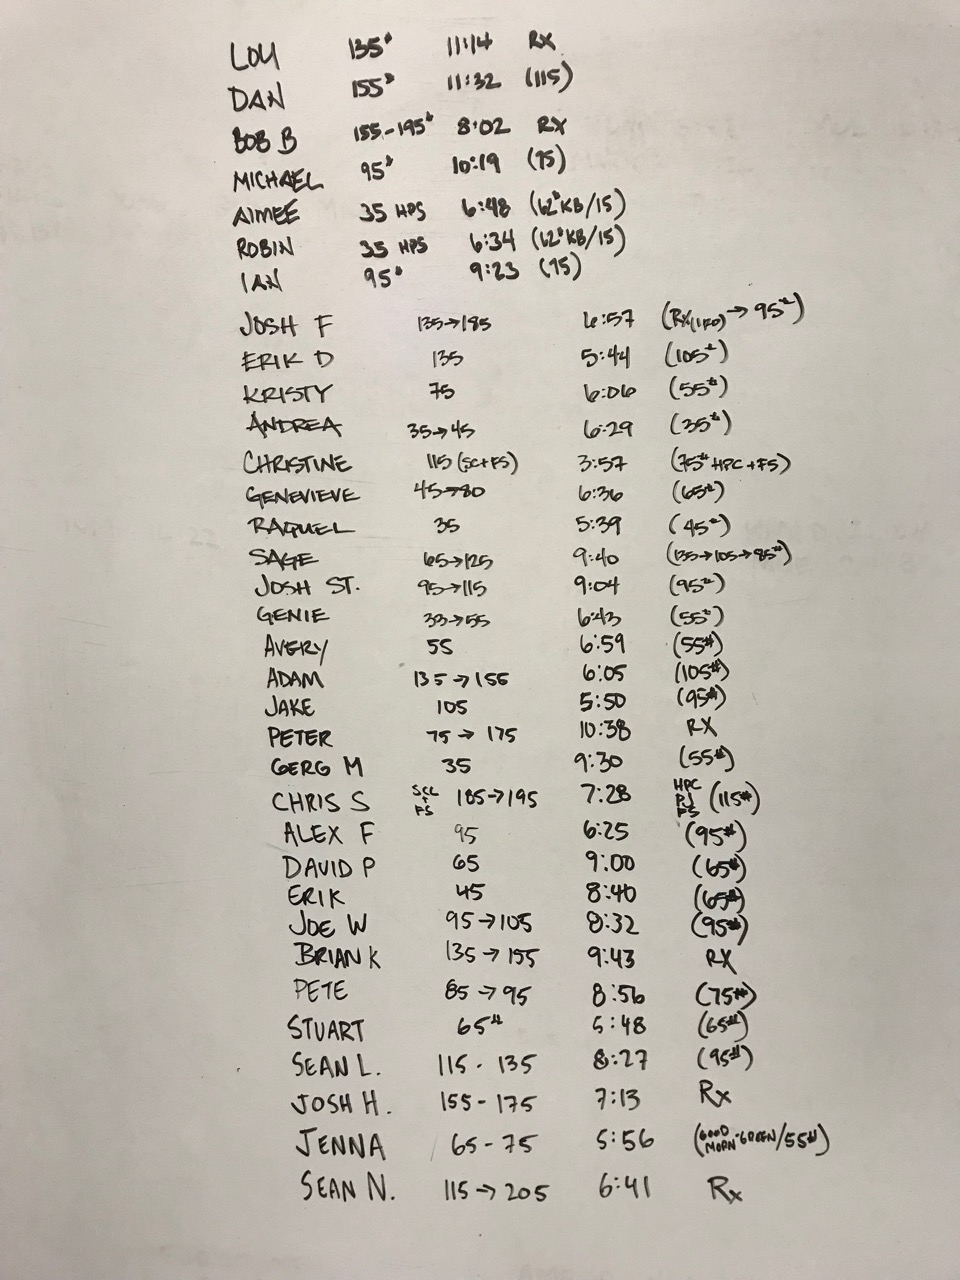 LOU 135# 11:14 RX
DAN 155# 11:32 (115)
BOB B 155-195# 8:02 RX
MICHAEL 95# 10:19 (75)
AIMEE 35 HPS 6:48 (62#KB/15)
ROBIN 35 HPS 6:34 (62#KB/15)
IAN 95# 9:23 (75)
JOSH F 135→185 6:57 (RX →95#)
ERIK D 135 5:44 (105#)
KRISTY 75 6:06 (55#)
ANDREA 35→45 6:29 (35#)
CHRISTINE 115 (SC+FS) 3:57 (75# HPC+FS)
GENEVIEVE 45→80 6:36 (65#)
RAQUEL 35 5:39 (45#)
SAGE 65→125 9:40 (135→105→85#)
JOSH ST. 95→115 9:04 (95#)
GENIE 33→55 6:43 (55#)
AVERY 55 6:59 (55#)
ADAM 135→155 6:05 (105#)
JAKE 105 5:50 (95#)
PETER 75→175 10:38 RX
GERG M 35 9:30 (55#)
CHRIS S SCL + FS 185→195 7:28 HPC PJ FS (115#)
ALEX F 95 6:25 (95#)
DAVID P 65 9:00 (65#)
ERIK 45 8:40 (65#)
JOE W 95→105 8:32 (95#)
BRIAN K 135→155 9:43 RX
PETE 85→95 8:56 (75#)
STUART 65# 5:48 (65#)
SEAN L. 115-135 8:27 (95#)
JOSH H. 155-175 7:13 Rx
JENNA 65-75 5:56 (GOOD MORN-GREEN/55#)
SEAN N. 115→205 6:41 Rx